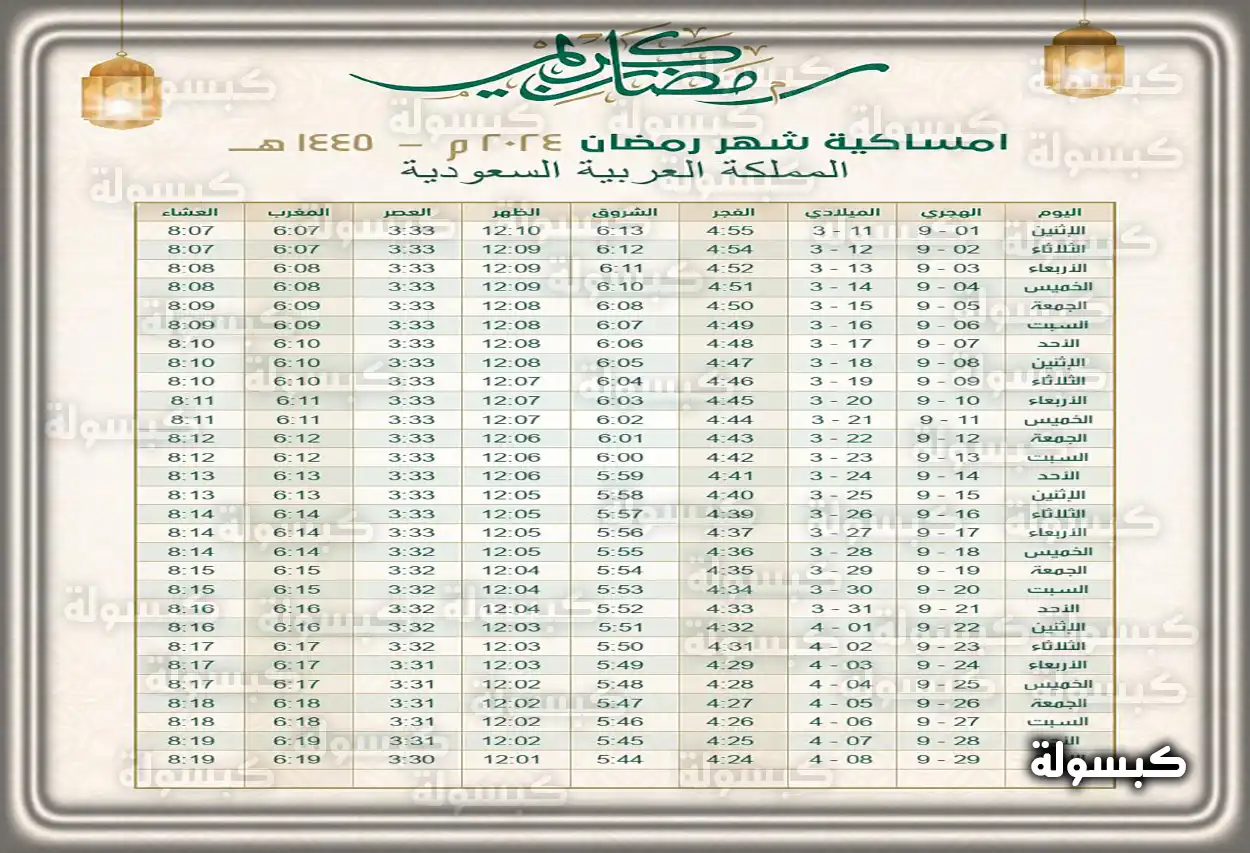 رمضان كريم
امساكية شهر رمضان ٢٠٢٤ م – ١٤٤٥ هـ
المملكة العربية السعودية
اليوم الهجري الميلادي الفجر الشروق الظهر العصر المغرب العشاء
الإثنين 01 - 9 11 - 3 4:55 6:13 12:10 3:33 6:07 8:07
الثلاثاء 02 - 9 12 - 3 4:54 6:12 12:09 3:33 6:07 8:07
الأربعاء 03 - 9 13 - 3 4:52 6:11 12:09 3:33 6:08 8:08
الخميس 04 - 9 14 - 3 4:51 6:10 12:09 3:33 6:08 8:08
الجمعة 05 - 9 15 - 3 4:50 6:08 12:08 3:33 6:09 8:09
السبت 06 - 9 16 - 3 4:49 6:07 12:08 3:33 6:09 8:09
الأحد 07 - 9 17 - 3 4:48 6:06 12:08 3:33 6:10 8:10
الإثنين 08 - 9 18 - 3 4:47 6:05 12:08 3:33 6:10 8:10
الثلاثاء 09 - 9 19 - 3 4:46 6:04 12:07 3:33 6:10 8:10
الأربعاء 10 - 9 20 - 3 4:45 6:03 12:07 3:33 6:11 8:11
الخميس 11 - 9 21 - 3 4:44 6:02 12:07 3:33 6:11 8:11
الجمعة 12 - 9 22 - 3 4:43 6:01 12:06 3:33 6:12 8:12
السبت 13 - 9 23 - 3 4:42 6:00 12:06 3:33 6:12 8:12
الأحد 14 - 9 24 - 3 4:41 5:59 12:06 3:33 6:13 8:13
الإثنين 15 - 9 25 - 3 4:40 5:58 12:05 3:33 6:13 8:13
الثلاثاء 16 - 9 26 - 3 4:39 5:57 12:05 3:33 6:14 8:14
الأربعاء 17 - 9 27 - 3 4:37 5:56 12:05 3:33 6:14 8:14
الخميس 18 - 9 28 - 3 4:36 5:55 12:05 3:32 6:14 8:14
الجمعة 19 - 9 29 - 3 4:35 5:54 12:04 3:32 6:15 8:15
السبت 20 - 9 30 - 3 4:34 5:53 12:04 3:32 6:15 8:15
الأحد 21 - 9 31 - 3 4:33 5:52 12:04 3:32 6:16 8:16
الإثنين 22 - 9 01 - 4 4:32 5:51 12:03 3:32 6:16 8:16
الثلاثاء 23 - 9 02 - 4 4:31 5:50 12:03 3:32 6:17 8:17
الأربعاء 24 - 9 03 - 4 4:29 5:49 12:03 3:31 6:17 8:17
الخميس 25 - 9 04 - 4 4:28 5:48 12:02 3:31 6:17 8:17
الجمعة 26 - 9 05 - 4 4:27 5:47 12:02 3:31 6:18 8:18
السبت 27 - 9 06 - 4 4:26 5:46 12:02 3:31 6:18 8:18
28 - 9 07 - 4 4:25 5:45 12:02 3:31 6:19 8:19
29 - 9 08 - 4 4:24 5:44 12:01 3:30 6:19 8:19
كبسولة